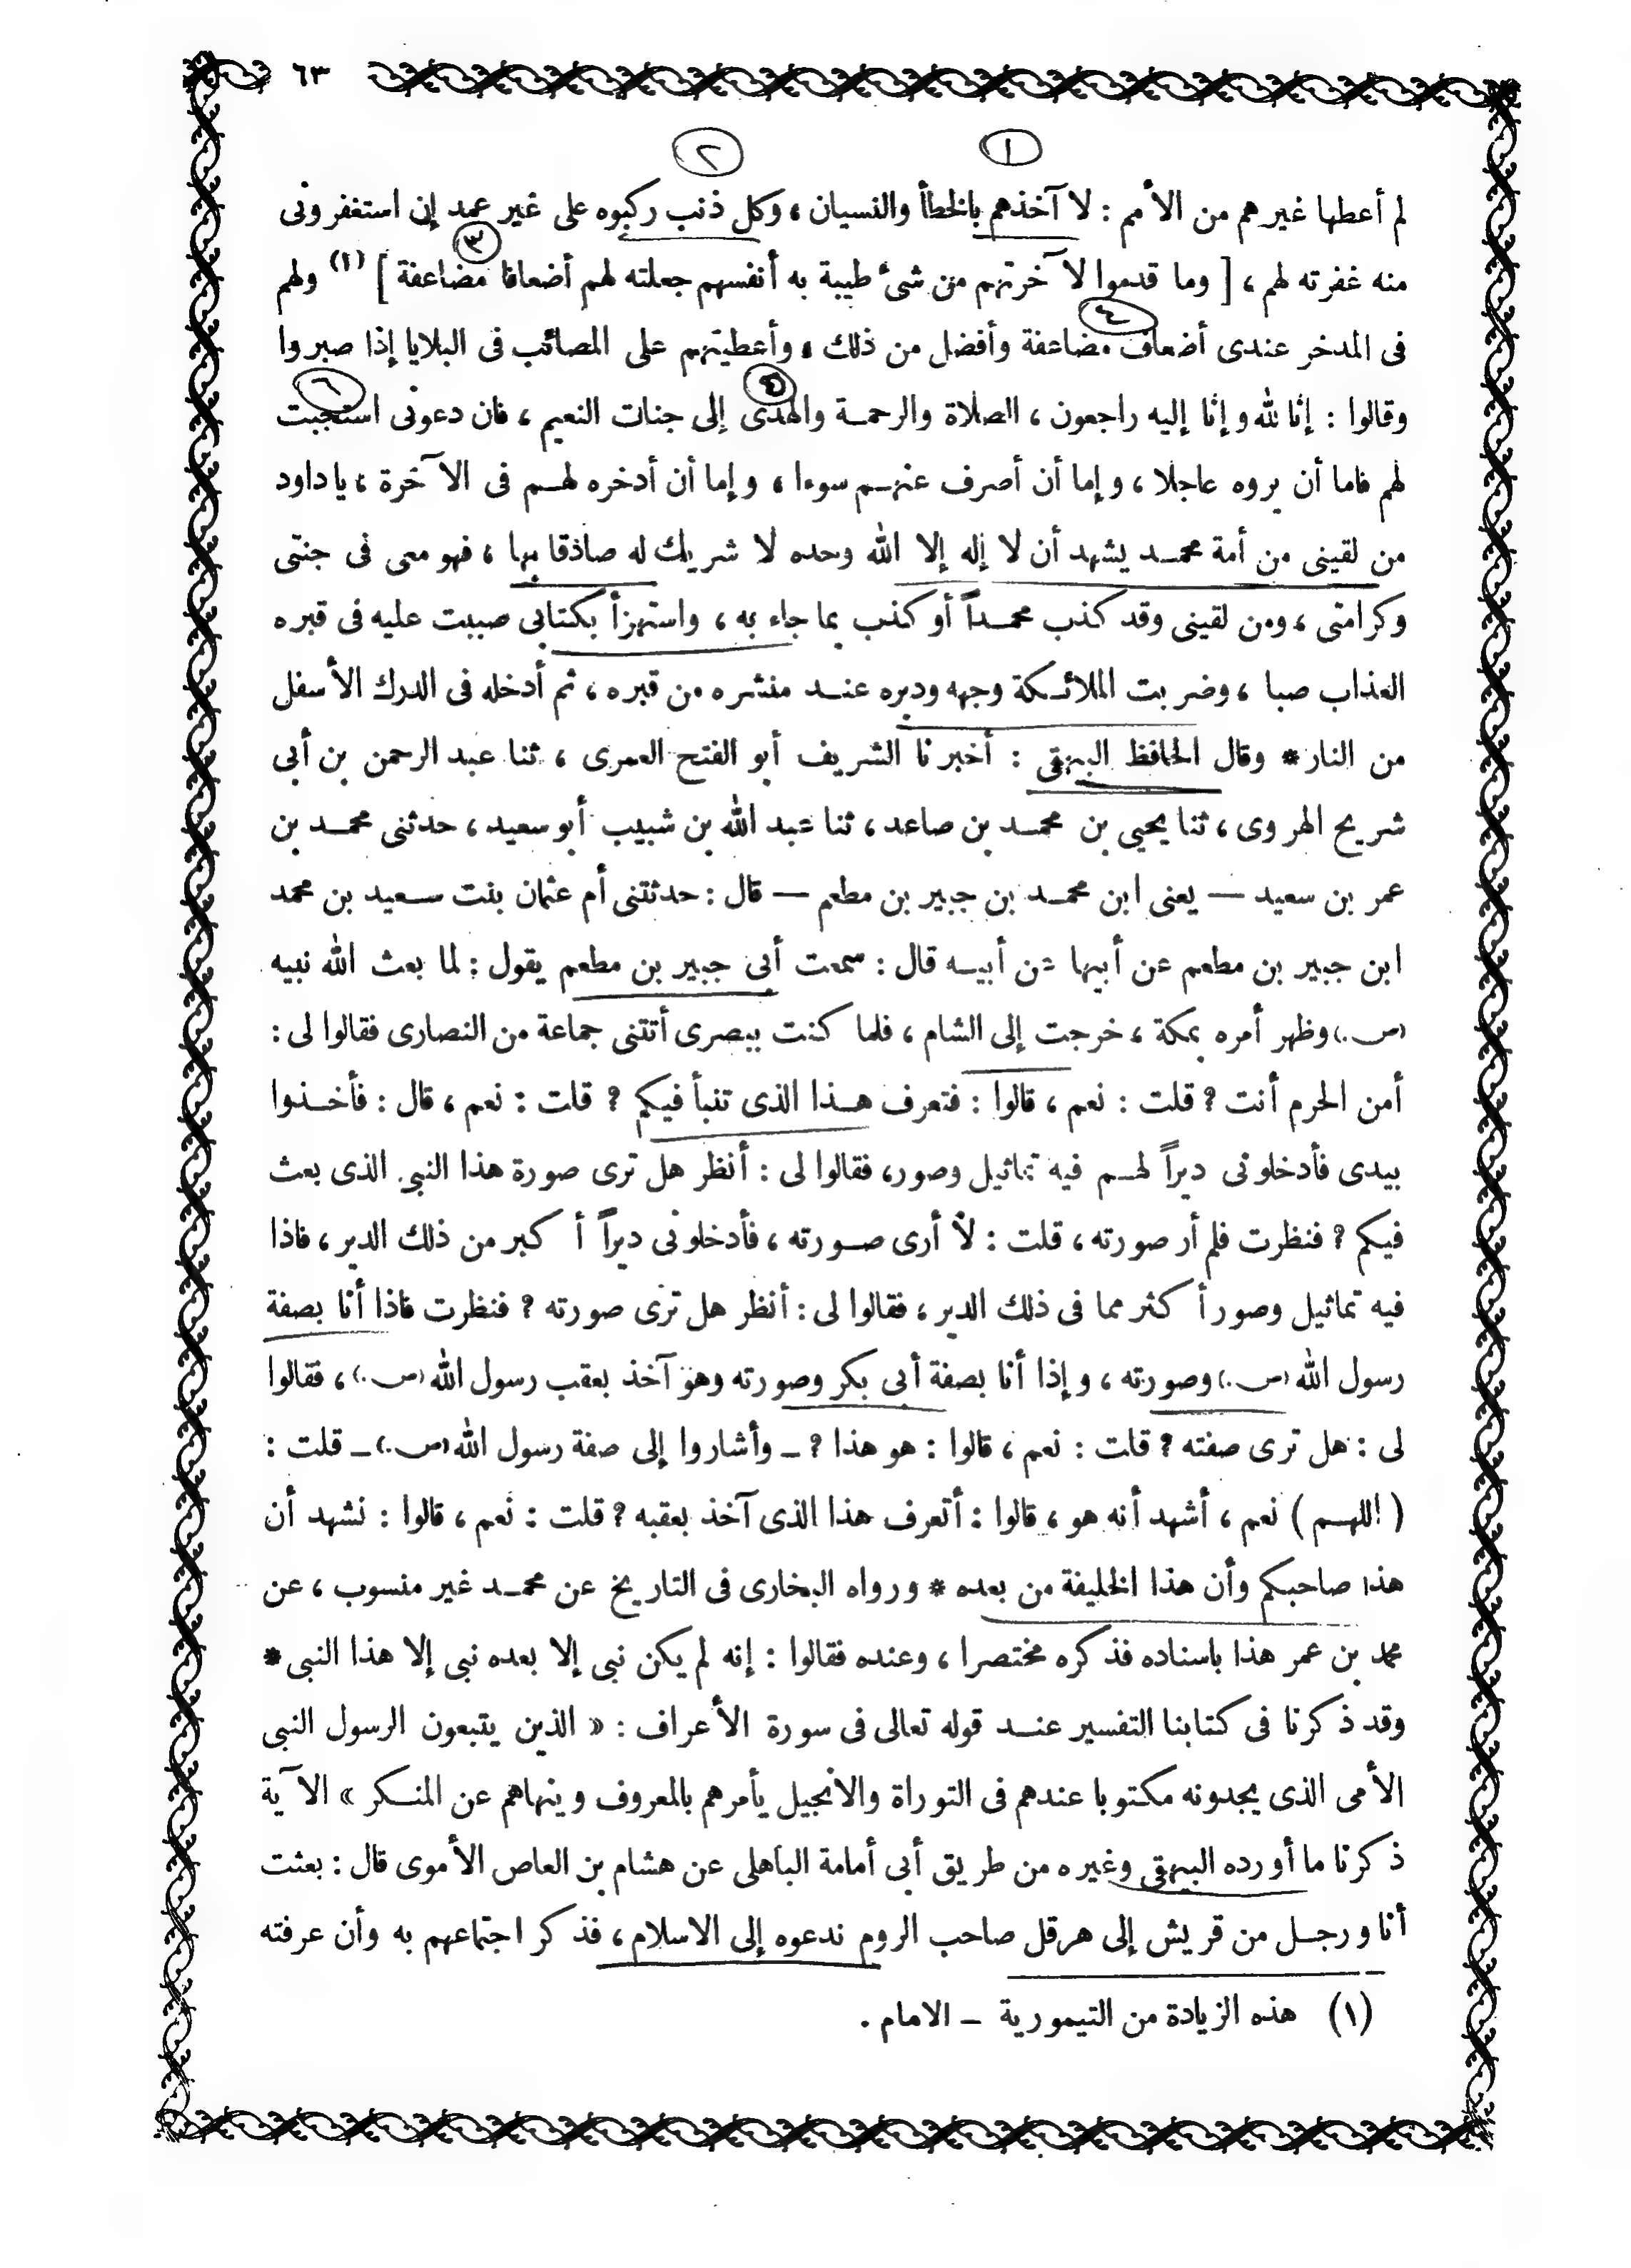 ٦٣
١ ٢
لم أعطها غيرهم من الأمم : لا آخذهم بالخطأ والنسيان ، وكل ذنب ركبوه على غير عمد إن استغفرونى
٣
منه غفرته لهم ، [ وما قدموا لآخرتهم من شئ طيبة به أنفسهم جعلته لهم أضعافا مضاعفة ] (١) ولهم
٤
فى المدخر عندى أضعاف مضاعفة وأفضل من ذلك ، وأعطيتهم على المصائب فى البلايا إذا صبروا
٥ ٦
وقالوا : إنا لله وإنا إليه راجعون ، الصلاة والرحمة والهدى إلى جنات النعيم ، فان دعونى استجبت
لهم فاما أن يروه عاجلا ، وإما أن أصرف عنهم سوءا ، وإما أن أدخره لهم فى الآخرة ، ياداود
من لقينى من أمة محمد يشهد أن لا إله إلا الله وحده لا شريك له صادقا بها ، فهو معى فى جنتى
وكرامتى ، ومن لقينى وقد كذب محمداً أو كذب بما جاء به ، واستهزأ بكتابى صببت عليه فى قبره
العذاب صبا ، وضربت الملائكة وجهه ودبره عند منشره من قبره ، ثم أدخله فى الدرك الأسفل
من النار * وقال الحافظ البيهقى : أخبرنا الشريف أبو الفتح العمرى ، ثنا عبد الرحمن بن أبى
شريح الهروى ، ثنا يحيى بن محمد بن صاعد ، ثنا عبد الله بن شبيب أبو سعيد ، حدثنى محمد بن
عمر بن سعيد — يعنى ابن محمد بن جبير بن مطعم — قال : حدثتنى أم عثمان بنت سعيد بن محمد
ابن جبير بن مطعم عن أبيها عن أبيه قال : سمعت أبى جبير بن مطعم يقول : لما بعث الله نبيه
(ص.) وظهر أمره بمكة ، خرجت إلى الشام ، فلما كنت ببصرى أتتنى جماعة من النصارى فقالوا لى :
أمن الحرم أنت ؟ قلت : نعم ، قالوا : فتعرف هذا الذى تنبأ فيكم ؟ قلت : نعم ، قال : فأخذوا
بيدى فأدخلونى ديراً لهم فيه تماثيل وصور، فقالوا لى : أنظر هل ترى صورة هذا النبى الذى بعث
فيكم ؟ فنظرت فلم أر صورته ، قلت : لا أرى صورته ، فأدخلونى ديراً أكبر من ذلك الدير ، فاذا
فيه تماثيل وصور أكثر مما فى ذلك الدير ، فقالوا لى : أنظر هل ترى صورته ؟ فنظرت فاذا أنا بصفة
رسول الله (ص.) وصورته ، وإذا أنا بصفة أبى بكر وصورته وهو آخذ بعقب رسول الله (ص.) ، فقالوا
لى : هل ترى صفته ؟ قلت : نعم ، قالوا : هو هذا ؟ – وأشاروا إلى صفة رسول الله (ص.) – قلت :
( اللهم ) نعم ، أشهد أنه هو ، قالوا : أتعرف هذا الذى آخذ بعقبه ؟ قلت : نعم ، قالوا : نشهد أن
هذا صاحبكم وأن هذا الخليفة من بعده * ورواه البخارى فى التاريخ عن محمد غير منسوب ، عن
محمد بن عمر هذا باسناده فذكره مختصرا ، وعنده فقالوا : إنه لم يكن نبى إلا بعده نبى إلا هذا النبى *
وقد ذكرنا فى كتابنا التفسير عند قوله تعالى فى سورة الأعراف : « الذين يتبعون الرسول النبى
الأمى الذى يجدونه مكتوبا عندهم فى التوراة والانجيل يأمرهم بالمعروف وينهاهم عن المنكر » الآية
ذكرنا ما أورده البيهقى وغيره من طريق أبى أمامة الباهلى عن هشام بن العاص الأموى قال : بعثت
أنا ورجل من قريش إلى هرقل صاحب الروم ندعوه إلى الاسلام ، فذكر اجتماعهم به وأن عرفته
(١) هذه الزيادة من التيمورية – الامام .